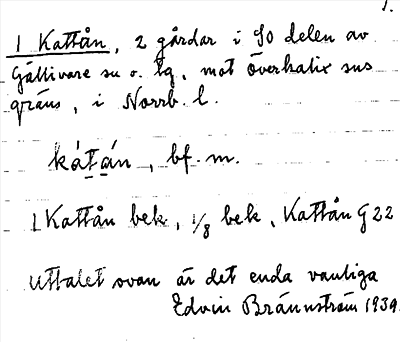 1.
1 Kattån, 2 gårdar i SO delen av
Gällivare sn o. tg, mot Överkalix sns
gräns, i Norrb. l.
kátán, bf. m.
1 Kattån bek, 1/8 bek, Kattån G 22
Uttalet ovan är det enda vanliga
Edvin Brännström 1939.